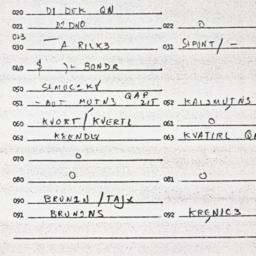 020 DI DEK QN
021 DJ DNO 022 O
023 —
030 A RILKS 031 SLPONT/-
040 $ )- BONDR
050 SLMOCSKY
051 - BUT MUTNS QAP 2IT 052 KALJMUTNS
060 KVORT/KVERTL 061 O
062 KSENDLY 063 KVATIRL QA
070 O
080 O 081 O
090 BRUNIN/TAJX
091 BRUNINS 092 KRENICS